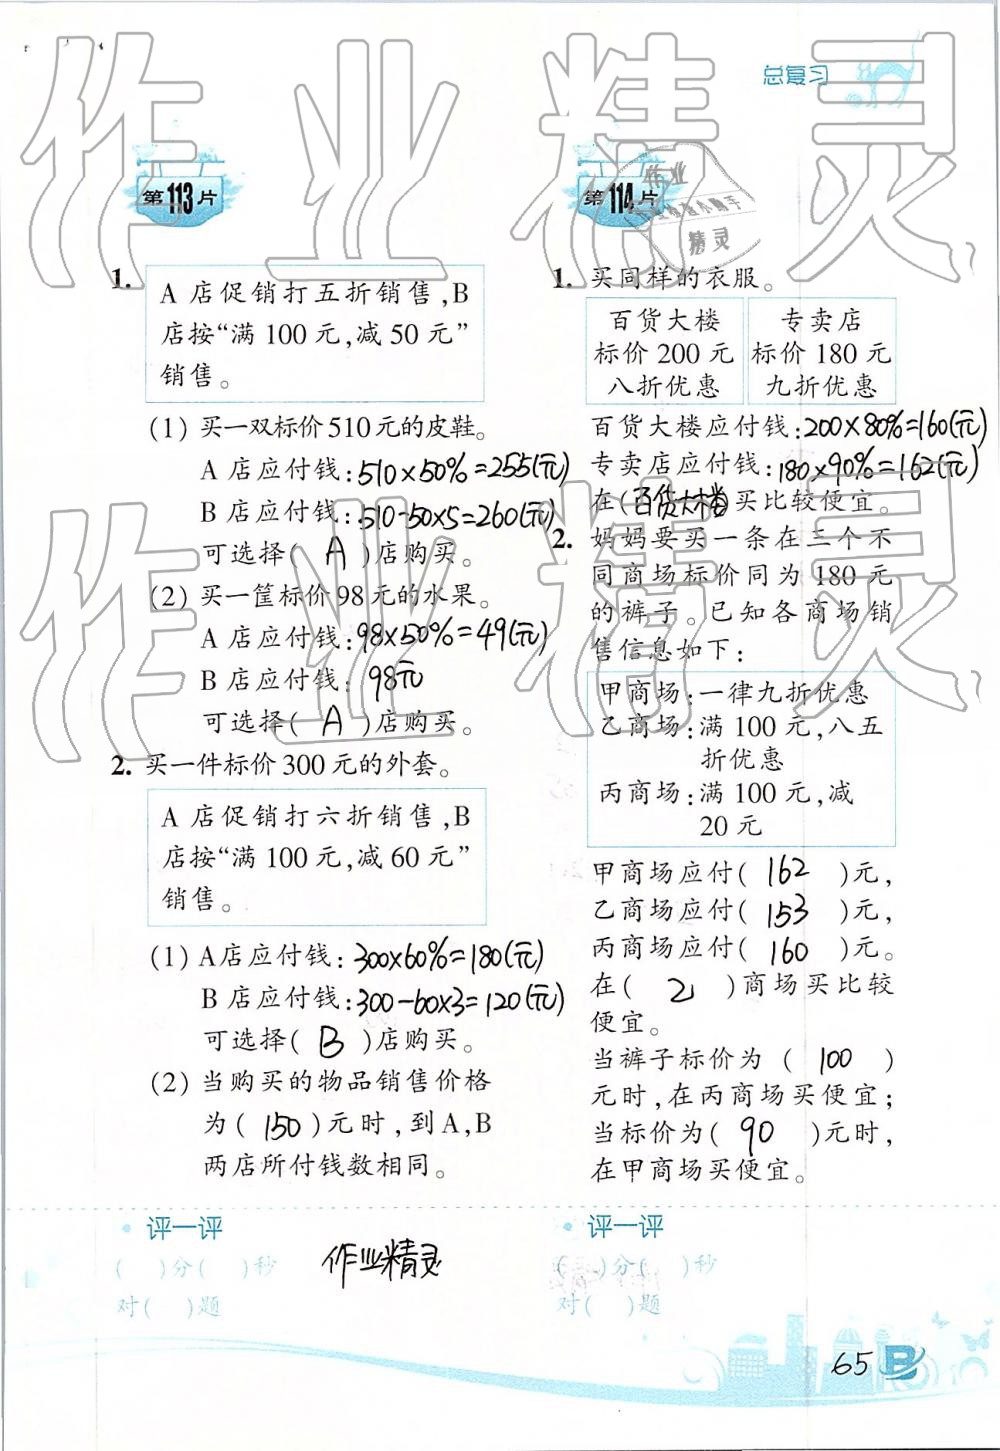 总复习
第113片
1. A店促销打五折销售,B
店按“满100元,减50元”
销售。
(1) 买一双标价510元的皮鞋。
A店应付钱:510×50%=255(元)
B店应付钱:510-50×5=260(元)
可选择( A )店购买。
(2) 买一筐标价98元的水果。
A店应付钱:98×50%=49(元)
B店应付钱: 98元
可选择( A )店购买。
2. 买一件标价300元的外套。
A店促销打六折销售,B
店按“满100元,减60元”
销售。
(1) A店应付钱:300×60%=180(元)
B店应付钱:300-60×3=120(元)
可选择( B )店购买。
(2) 当购买的物品销售价格
为( 150 )元时,到A,B
两店所付钱数相同。
评一评
( )分( )秒
对( )题
作业精灵
第114片
1. 买同样的衣服。
百货大楼
标价200元
八折优惠
专卖店
标价180元
九折优惠
百货大楼应付钱:200×80%=160(元)
专卖店应付钱:180×90%=162(元)
在(百货大楼)买比较便宜。
2. 妈妈要买一条在三个不
同商场标价同为180元
的裤子。已知各商场销
售信息如下:
甲商场:一律九折优惠
乙商场:满100元,八五
折优惠
丙商场:满100元,减
20元
甲商场应付( 162 )元,
乙商场应付( 153 )元,
丙商场应付( 160 )元。
在( 乙 )商场买比较
便宜。
当裤子标价为( 100 )
元时,在丙商场买便宜;
当标价为( 90 )元时,
在甲商场买便宜。
评一评
( )分( )秒
对( )题
65
作业精灵
作业精灵